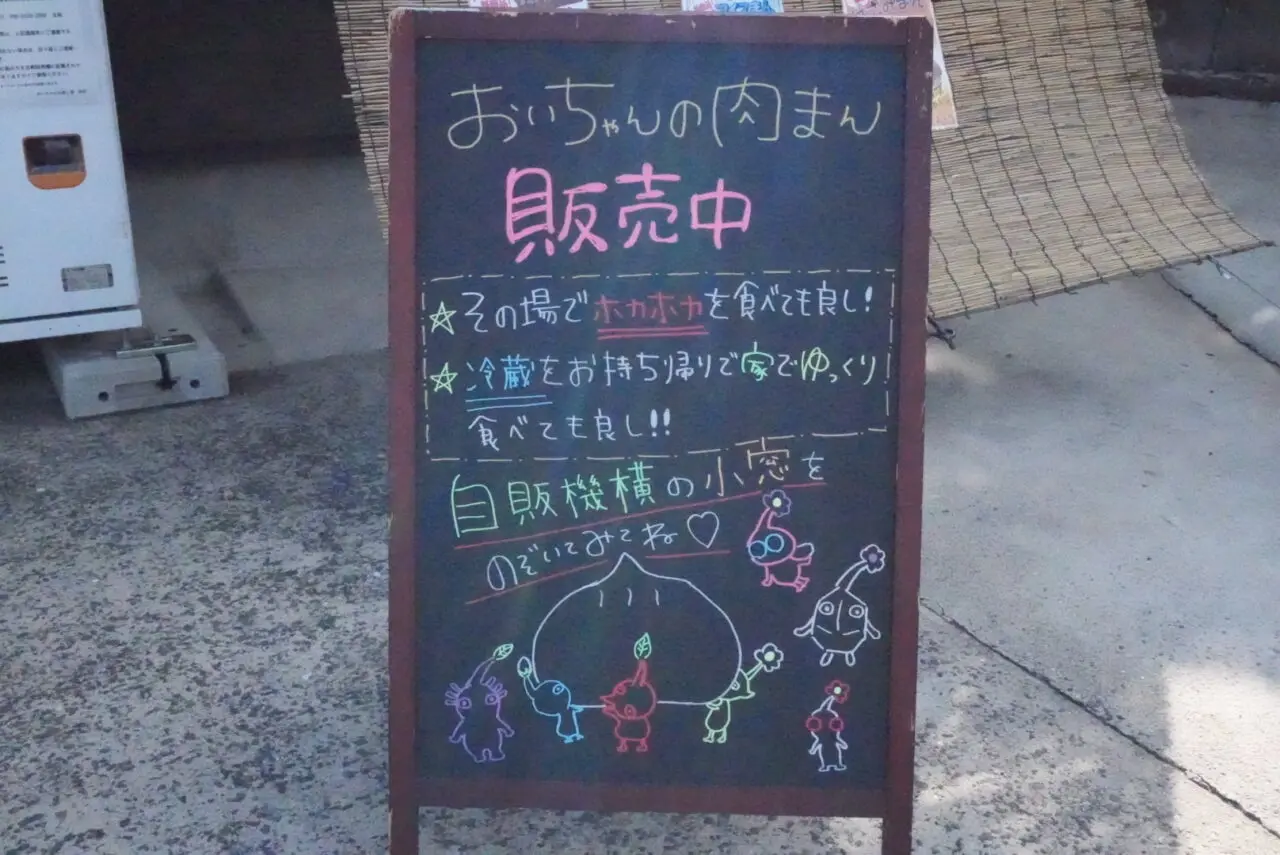 おいちゃんの肉まん
販売中
☆その場でホカホカを食べても良し!
☆冷蔵をお持ち帰りで家でゆっくり
食べても良し!!
自販機横の小窓を
のぞいてみてね♡